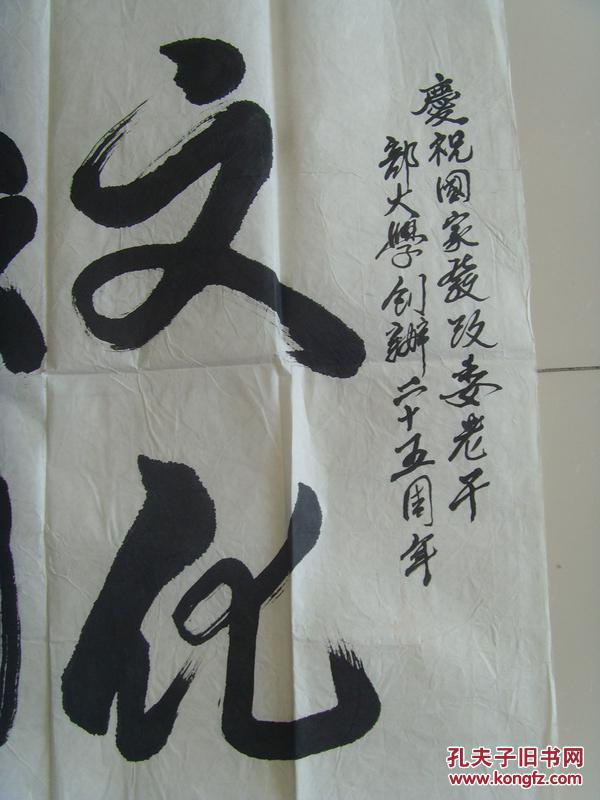 慶祝國家發改委老干
部大學創辦二十五周年
文化
孔夫子旧书网
www.kongfz.com